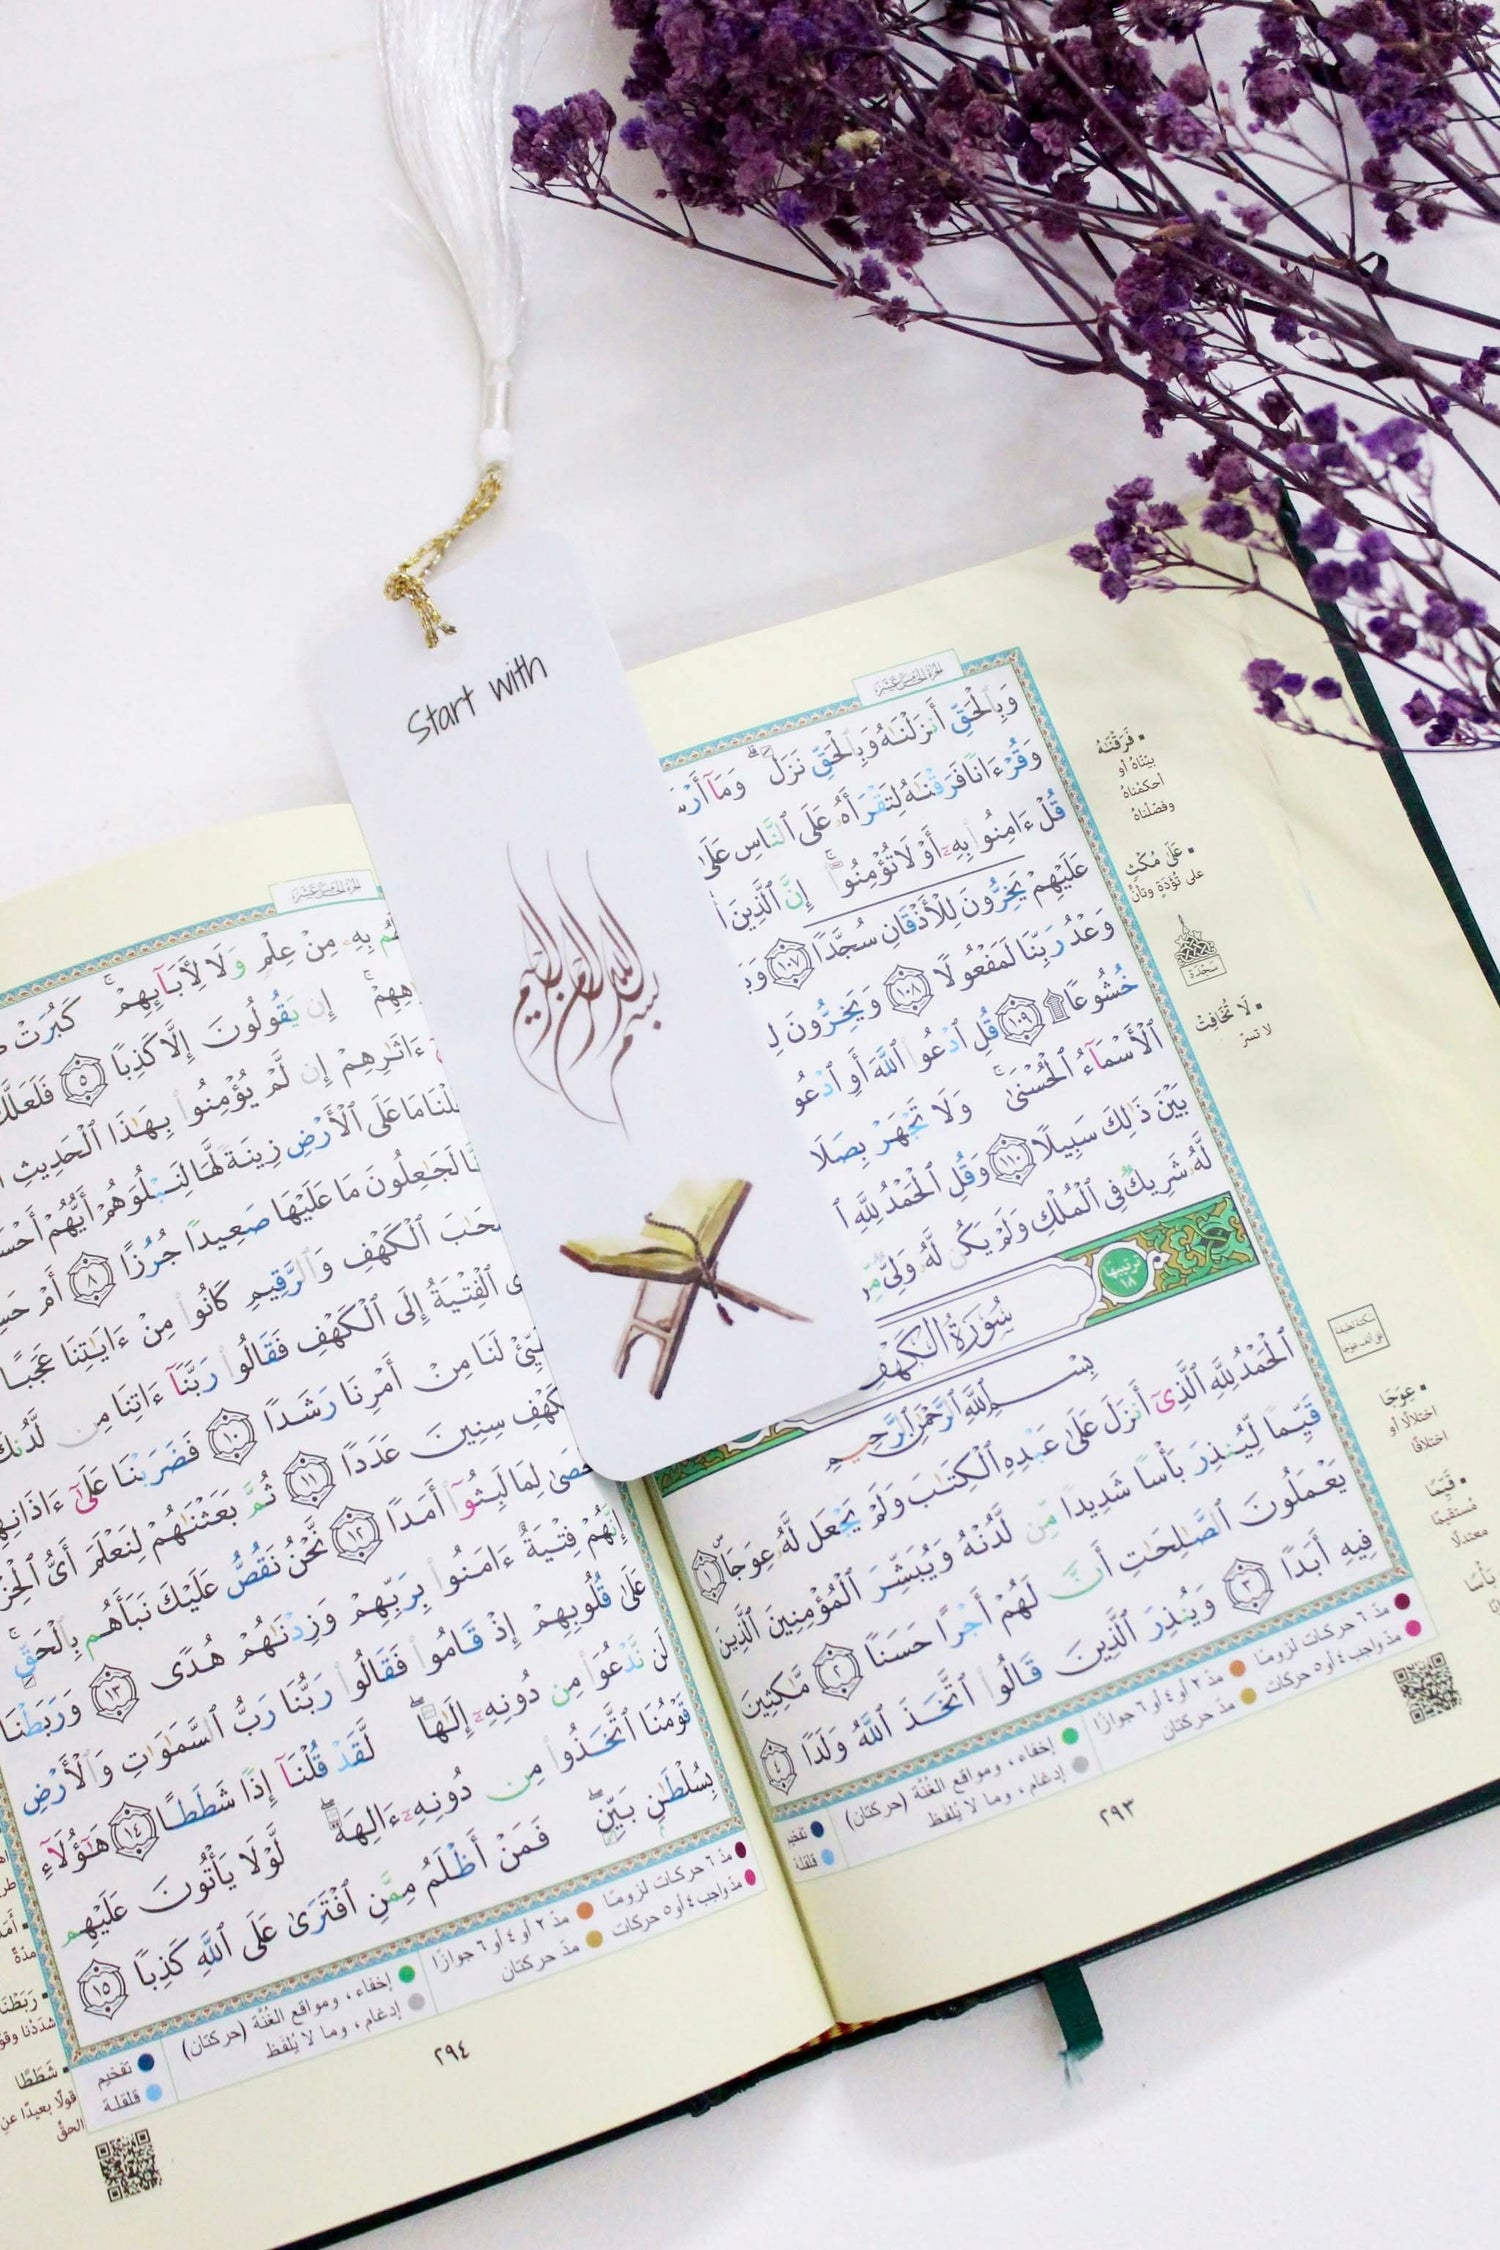 Start with
بسم الله الرحمن الرحيم
الجزء الخامس عشر
وَبِٱلْحَقِّ أَنزَلْنَٰهُ وَبِٱلْحَقِّ نَزَلَ ۗ وَمَآ
وَقُرْءَانًا فَرَقْنَٰهُ لِتَقْرَأَهُۥ عَلَى ٱلنَّاسِ عَلَىٰ
قُلْ ءَامِنُوا۟ بِهِۦٓ أَوْ لَا تُؤْمِنُوٓا۟ ۚ إِنَّ ٱلَّذِينَ
عَلَيْهِمْ يَخِرُّونَ لِلْأَذْقَانِ سُجَّدًا ١٠٧
وَعْدُ رَبِّنَا لَمَفْعُولًا ١٠٨ وَيَخِرُّونَ
خُشُوعًا ۩ ١٠٩ قُلِ ٱدْعُوا۟ ٱللَّهَ أَوِ ٱدْعُوا
ٱلْأَسْمَآءُ ٱلْحُسْنَىٰ ۚ وَلَا تَجْهَرْ بِصَلَا
بَيْنَ ذَٰلِكَ سَبِيلًا ١١٠ وَقُلِ ٱلْحَمْدُ لِلَّهِ
لَّهُۥ شَرِيكٌ فِى ٱلْمُلْكِ وَلَمْ يَكُن لَّهُۥ وَلِىٌّ
ترتيبها ١٨
سُورَةُ الكَهْفِ
بِسْمِ ٱللَّهِ ٱلرَّحْمَٰنِ ٱلرَّحِيمِ
ٱلْحَمْدُ لِلَّهِ ٱلَّذِىٓ أَنزَلَ عَلَىٰ عَبْدِهِ ٱلْكِتَٰبَ وَلَمْ يَجْعَل لَّهُۥ عِوَجَا ۜ ١
قَيِّمًا لِّيُنذِرَ بَأْسًا شَدِيدًا مِّن لَّدُنْهُ وَيُبَشِّرَ ٱلْمُؤْمِنِينَ ٱلَّذِينَ
يَعْمَلُونَ ٱلصَّٰلِحَٰتِ أَنَّ لَهُمْ أَجْرًا حَسَنًا ٢ مَّٰكِثِينَ
فِيهِ أَبَدًا ٣ وَيُنذِرَ ٱلَّذِينَ قَالُوا۟ ٱتَّخَذَ ٱللَّهُ وَلَدًا ٤
فَرَقْنَٰهُ
بيّنّاهُ أو
أحكمْناهُ
وفصّلناهُ
عَلَىٰ مُكْثٍ
على تُؤَدَةٍ وتأنٍّ
سَجْدَة
لَا تُخَافِتْ
لا تسرّ
عِوَجَا
اختلالًا أو
اختلافًا
قَيِّمًا
مُستقيمًا
معتدلًا
بَأْسًا
مدّ ٦ حركات لزومًا
مدّ ٢ أو ٤ أو ٦ جوازًا
مدّ واجب ٤ أو ٥ حركات
مدّ حركتان
إخفاء، ومواقع الغُنَّة (حركتان)
إدغام، وما لا يُلفَظ
تفخيم
قلقلة
٢٩٣
الجزء الخامس عشر
بِهِۦ مِنْ عِلْمٍ وَلَا لِـَٔابَآئِهِمْ ۚ كَبُرَتْ
إِن يَقُولُونَ إِلَّا كَذِبًا ٥ فَلَعَلَّكَ
ءَاثَٰرِهِمْ إِن لَّمْ يُؤْمِنُوا۟ بِهَٰذَا ٱلْحَدِيثِ
مَا عَلَى ٱلْأَرْضِ زِينَةً لَّهَا لِنَبْلُوَهُمْ أَيُّهُمْ أَحْسَ
لَجَٰعِلُونَ مَا عَلَيْهَا صَعِيدًا جُرُزًا ٨ أَمْ
ٱلْكَهْفِ وَٱلرَّقِيمِ كَانُوا۟ مِنْ ءَايَٰتِنَا عَجَبًا
ٱلْفِتْيَةُ إِلَى ٱلْكَهْفِ فَقَالُوا۟ رَبَّنَآ ءَاتِنَا مِن لَّدُنكَ
لَنَا مِنْ أَمْرِنَا رَشَدًا ١٠ فَضَرَبْنَا عَلَىٰٓ ءَاذَانِهِ
سِنِينَ عَدَدًا ١١ ثُمَّ بَعَثْنَٰهُمْ لِنَعْلَمَ أَىُّ ٱلْحِزْ
لِمَا لَبِثُوٓا۟ أَمَدًا ١٢ نَّحْنُ نَقُصُّ عَلَيْكَ نَبَأَهُم بِٱلْحَقِّ ۚ
إِنَّهُمْ فِتْيَةٌ ءَامَنُوا۟ بِرَبِّهِمْ وَزِدْنَٰهُمْ هُدًى ١٣ وَرَبَطْنَا
عَلَىٰ قُلُوبِهِمْ إِذْ قَامُوا۟ فَقَالُوا۟ رَبُّنَا رَبُّ ٱلسَّمَٰوَٰتِ وَٱلْأَرْضِ
لَن نَّدْعُوَا۟ مِن دُونِهِۦٓ إِلَٰهًا ۖ لَّقَدْ قُلْنَآ إِذًا شَطَطًا ١٤ هَٰٓؤُلَآءِ
قَوْمُنَا ٱتَّخَذُوا۟ مِن دُونِهِۦٓ ءَالِهَةً ۖ لَّوْلَا يَأْتُونَ عَلَيْهِم
بِسُلْطَٰنٍ بَيِّنٍ ۖ فَمَنْ أَظْلَمُ مِمَّنِ ٱفْتَرَىٰ عَلَى ٱللَّهِ كَذِبًا ١٥
رَبَطْنَا
شدَدْنا
شَطَطًا
قولًا بعيدًا عن
الحقّ
مدّ ٦ حركات لزومًا
مدّ ٢ أو ٤ أو ٦ جوازًا
مدّ واجب ٤ أو ٥ حركات
مدّ حركتان
إخفاء، ومواقع الغُنَّة (حركتان)
إدغام، وما لا يُلفَظ
تفخيم
قلقلة
٢٩٤